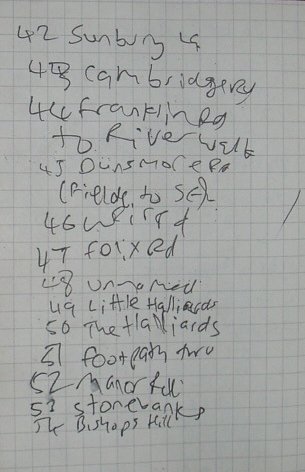 42 Sunbury La
43 Cambridgery
44 Franklin Rd
to River Walk
45 Dunsmore Rd
(Fields to SE)
46 Weir Rd
47 Foxi Rd
48 unnamed
49 Little Halliards
50 The Halliards
51 footpath thro
52 Manor
53 Stonebanks
54 Bishops Hill